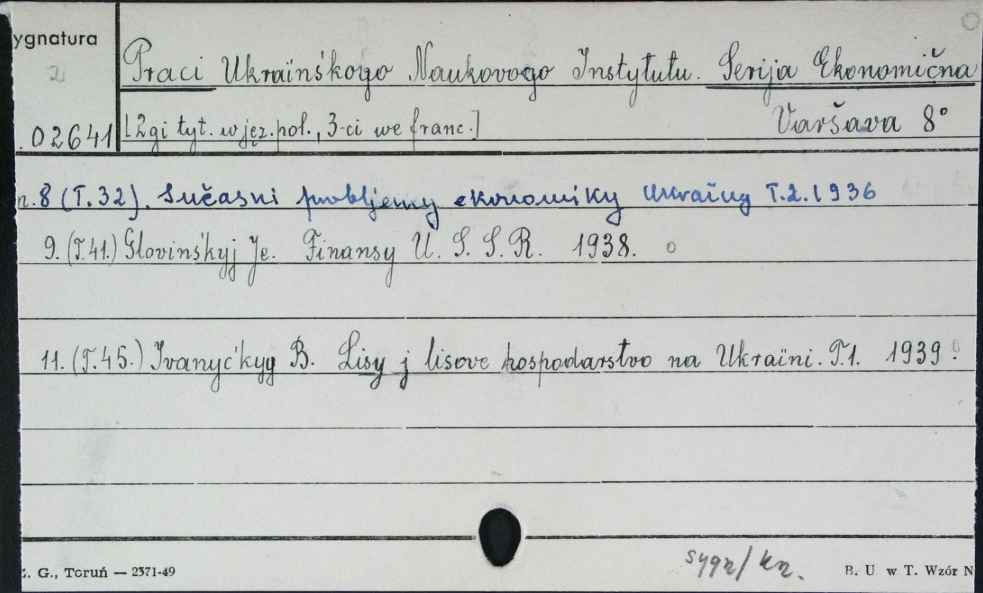 ygnatura
Praci Ukraïnśkogo Naukovogo Instytutu. Serija Ekonomična
02641 [2gi tyt. w jęz. pol., 3-ci we franc.] Varšava 8°
n. 8 (T.32). Sučasni probljemy ekonomiky Ukraïny T.2. 1936
9. (T.41.) Glovinśkyj Je. Finansy U. S. S. R. 1938.
11. (T.45.) Ivanyćkyj B. Lisy j lisove hospodarstvo na Ukraïni. T.1. 1939.
sygn/kn.
. G., Toruń — 2371-49 B. U. w T. Wzór N